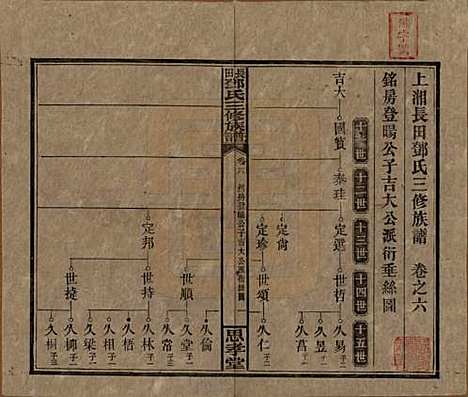 上湘長田鄧氏三修族譜 卷之六
銘房登暘公子吉大公派衍垂絲圖
十一世 十二世 十三世 十四世 十五世
吉大
國賓
泰珪
定選
定尚
定珍
世哲
世頌
久易 子二
久昱 子一
久菖
久仁
長田鄧氏三修族譜
卷六 銘房登暘公子吉大公派垂絲圖
思孝堂
定邦
世順
世持
世捷
久倫
久堂
久常
久林
久梧
久相
久梁
久柳
久桐